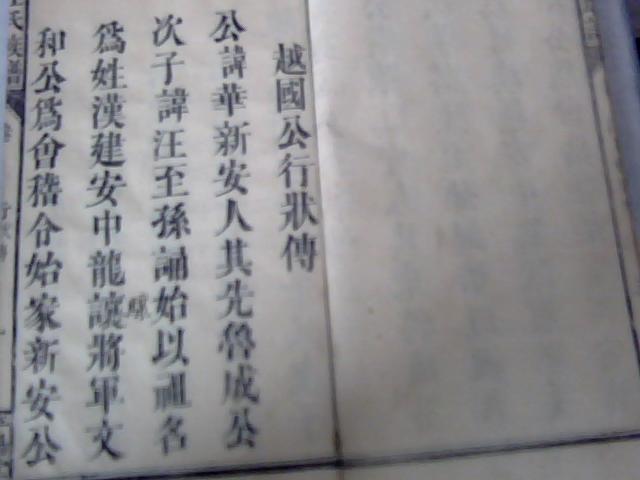 越國公行狀傳
公諱華新安人其先魯成公
次子諱汪至孫誦始以祖名
爲姓漢建安中龍驤將軍文
和公爲會稽令始家新安公
氏族譜